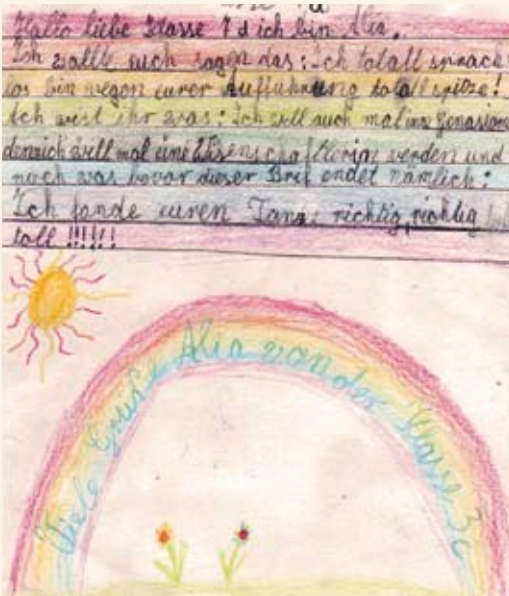 Hallo liebe Klasse 7d ich bin Alia.
Ich wollte euch sagen das: Ich totall sprach:
los bin wegen eurer Aufführung totall spitze!
Ach west ihr was: Ich will auch mal ins
dennich will mal eine Wisenschaftlerin werden und
noch was bevor dieser Brif endet nämlich:
Ich fande euren Tanz richtig, richtig
toll !!!!!!
Viele Grüße Alia von der Klasse 3c